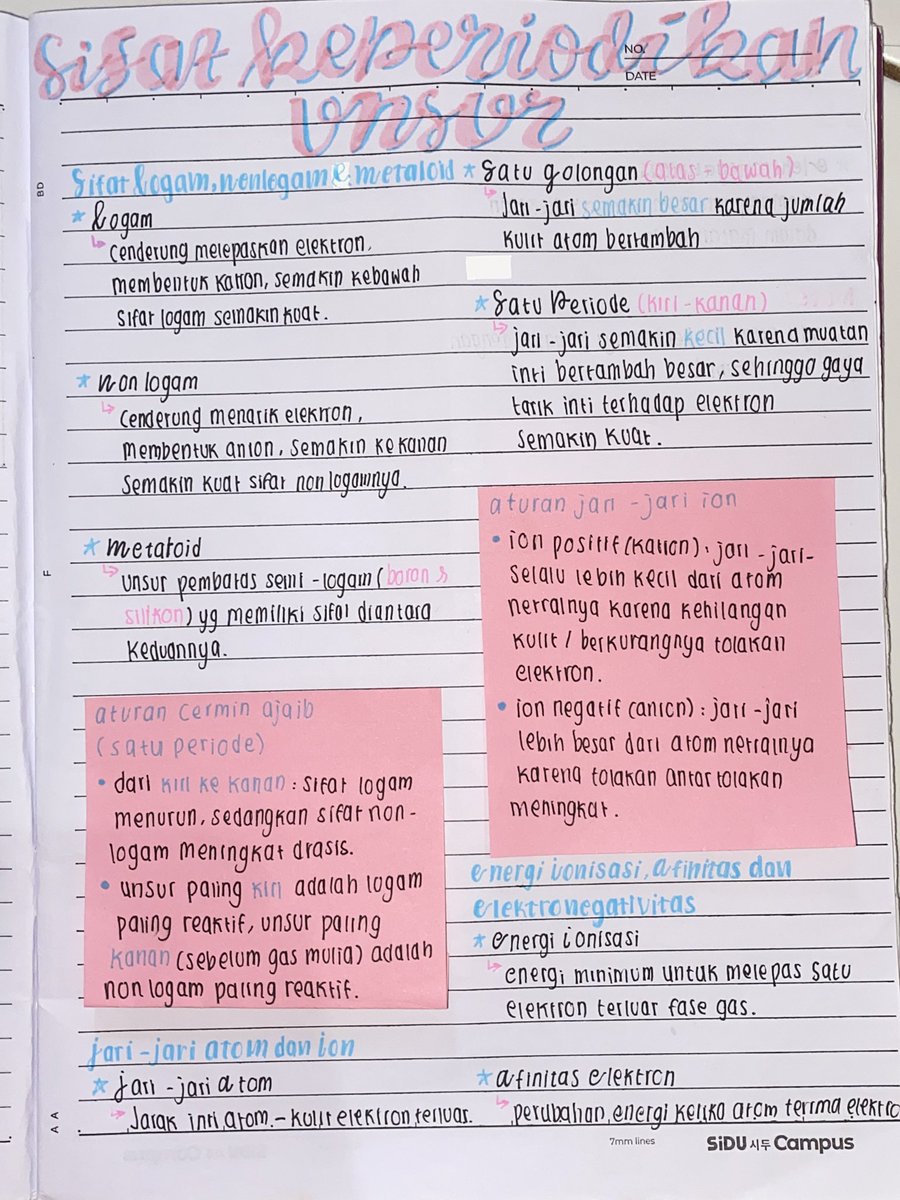 sifat keperiodikan
unsur
NO.
DATE
BD
F
A A
Sifat logam, nonlogam & metaloid
* logam
↳ cenderung melepaskan elektron,
membentuk kation, semakin kebawah
sifat logam semakin kuat.
* non logam
↳ cenderung menarik elektron,
membentuk anion, semakin ke kanan
semakin kuat sifat non logamnya.
* metaloid
↳ unsur pembatas semi-logam (boron &
silikon) yg memiliki sifat diantara
keduannya.
aturan cermin ajaib
(satu periode)
• dari kiri ke kanan : sifat logam
menurun, sedangkan sifat non-
logam meningkat drasis.
• unsur paling kiri adalah logam
paling reaktif, unsur paling
kanan (sebelum gas mulia) adalah
non logam paling reaktif.
jari-jari atom dan ion
* jari-jari atom
↳ Jarak inti atom - kulit elektron terluar.
* Satu golongan (atas - bawah)
↳ Jari-jari semakin besar karena jumlah
kulit atom bertambah
* Satu Periode (kiri-kanan)
↳ jari-jari semakin kecil karena muatan
inti bertambah besar, sehingga gaya
tarik inti terhadap elektron
semakin kuat.
aturan jari-jari ion
• ion positif (kation) : jari-jari-
selalu lebih kecil dari atom
netralnya karena kehilangan
kulit / berkurangnya tolakan
elektron.
• ion negatif (anion) : jari-jari
lebih besar dari atom netralnya
karena tolakan antar tolakan
meningkat.
energi ionisasi, afinitas dan
elektronegativitas
* energi ionisasi
↳ energi minimum untuk melepas satu
elektron terluar fase gas.
* afinitas elektron
↳ perubahan energi ketika atom terima elektro
7mm lines
SiDU 시두 Campus